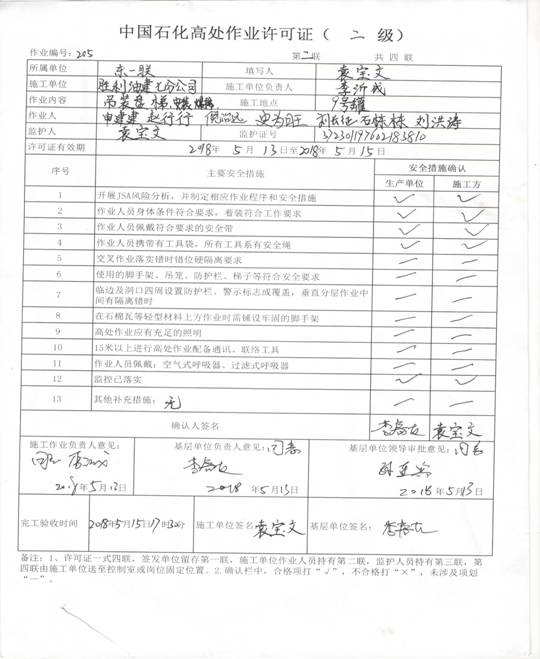 中国石化高处作业许可证（ 二 级）
作业编号：205 第二联 共 四 联
所属单位 东一联 填写人 袁宝文
施工单位 胜利油建七分公司 施工单位负责人 李沂成
作业内容 吊装盘梯, 施工地点 9号罐
作业人 申建建 赵行行 史为旺 刘洪涛
监护人 袁宝文 监护证号 372301197602183810
许可证有效期 2018年 5 月 13日至2018年 5 月 15日
序号 主要安全措施 安全措施确认
生产单位 施工方
1 开展JSA风险分析，并制定相应作业程序和安全措施 ✓ ✓
2 作业人员身体条件符合要求，着装符合工作要求 ✓ ✓
3 作业人员佩戴符合要求的安全带 ✓ ✓
4 作业人员携带有工具袋，所有工具系有安全绳 ✓ ✓
5 交叉作业落实错时错位硬隔离要求 — —
6 使用的脚手架、吊笼、防护栏、梯子等符合安全要求 — —
7 临边及洞口四周设置防护栏、警示标志或覆盖，垂直分层作业中
间有隔离错时 — —
8 在石棉瓦等轻型材料上方作业时需铺设牢固的脚手架 — —
9 高处作业应有充足的照明 — —
10 15米以上进行高处作业配备通讯、联络工具 — —
11 作业人员佩戴：空气式呼吸器、过滤式呼吸器 — —
12 监控已落实 ✓ ✓
13 其他补充措施：无 — —
确认人签名 袁宝文
施工作业负责人意见： 基层单位负责人意见： 基层单位领导审批意见：
2018年5月13日 2018 年5月13日 2018 年5月13日
完工验收时间 2018年5月15日17时30分 施工单位签名 袁宝文 基层单位签名：
备注：1、许可证一式四联，签发单位留存第一联，施工单位作业人员持有第二联，监护人员持有第三联，第
四联由施工单位送至控制室或岗位固定位置。2.确认栏中，合格项打“√”，不合格打“×”，未涉及项划
“—”。